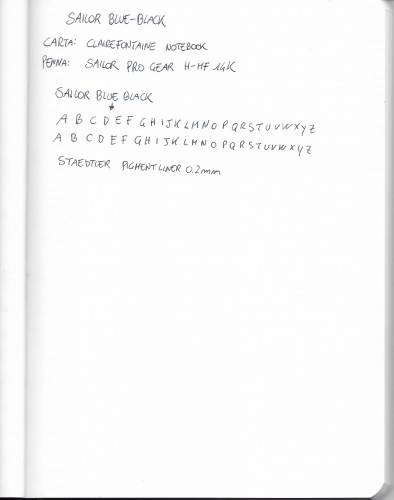 SAILOR BLUE-BLACK
CARTA: CLAIREFONTAINE NOTEBOOK
PENNA: SAILOR PRO GEAR H-MF 14K
SAILOR BLUE BLACK
A B C D E F G H I J K L M N O P Q R S T U V W X Y Z
A B C D E F G H I J K L M N O P Q R S T U V W X Y Z
STAEDTLER PIGMENT LINER 0.2mm